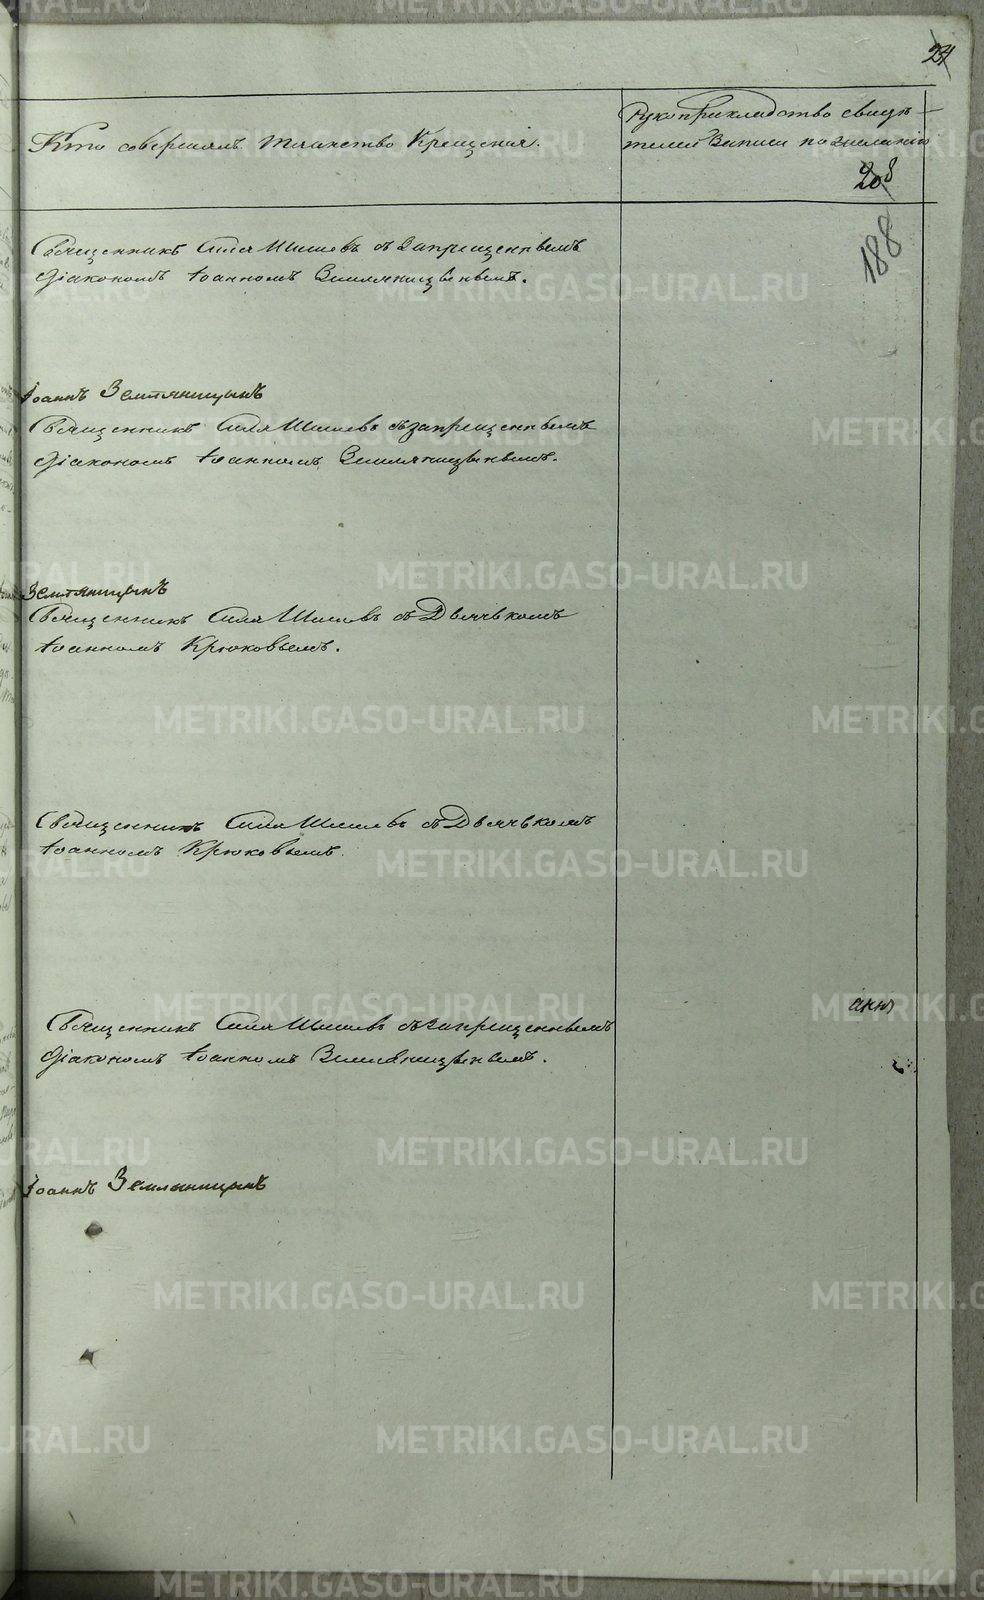 24
Кто совершалъ таинство Крещенія.
Рукоприкладство свидѣ-
телей записи по желанію
208
188
Священникъ Сила Шишевъ съ Запрещеннымъ
Діакономъ Іоанномъ Земляницынымъ.
Іоаннъ Земляницынъ
Священникъ Сила Шишевъ съ запрещеннымъ
Діакономъ Іоанномъ Земляницынымъ.
Земляницынъ
Священникъ Сила Шишевъ съ Дьячькомъ
Іоанномъ Крюковымъ.
Священникъ Сила Шишевъ съ Дьячькомъ
Іоанномъ Крюковымъ.
Священникъ Сила Шишевъ съ запрещеннымъ
Діакономъ Іоанномъ Земляницынымъ.
Іоаннъ Земляницынъ
METRIKI.GASO-URAL.RU